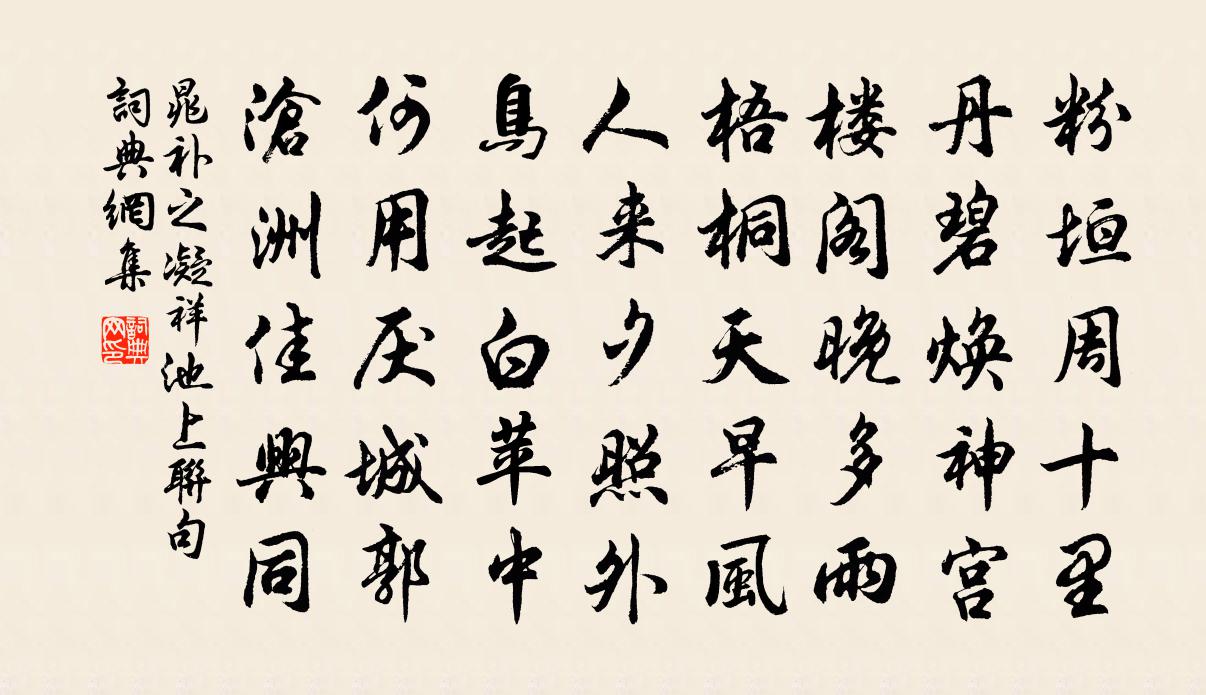 粉垣周十里
丹碧焕神宫
楼阁晚多雨
梧桐天早風
人来夕照外
鳥起白苹中
何用厌城郭
滄洲佳興同
晁补之凝祥池上聯句
詞典網集
詞典网印